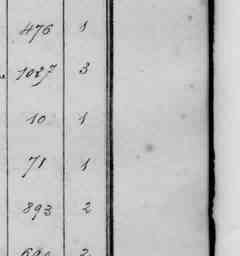 476 1
1037 3
10 1
71 1
893 2